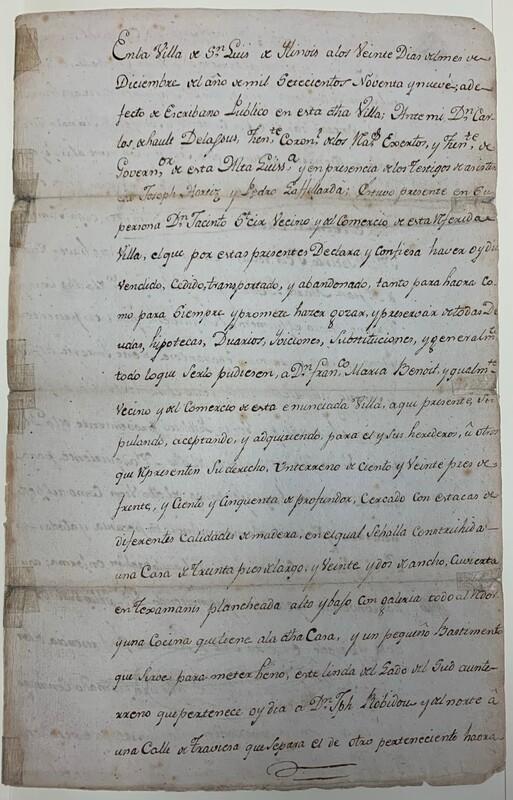 En la Villa de Sn Luis de Ilinois a los Veinte Dias del mes de
Diciembre del año de mil Setecientos Noventa y nueve; a de
fecto de Escribano Publico en esta dha Villa; Ante mi Dn Car
los, dehault Delassus, Thente Coronl de los Rs Exertos, y Thente de
Governor de esta Alta Luissa y en presencia de los Testigos de asisten
cia Joseph Hortiz y Pedro Laffillarda; Estuvo presente en Su
persona Dn Jacinto St Cir Vecino y del Comercio de esta Referida
Villa, el que por estas presentes Declara y Confiesa haver oy dia
vendido, Cedido, transportado, y abandonado, tanto para haora co
mo para Siempre y promete hazer gozar, y preservar de todas De
udas, hipotecas, Duarios, Substituciones, y generalmte
todo lo que Serlo pudiesen, a Dn Franco Maria Benoit, y qualmte
Vecino y del Comercio de esta enunciada Villa, aqui presente, Sti
pulando, aceptando, y adquiriendo, para el y sus herederos, û otros
que Representen Su derecho, Un terreno de Ciento y Veinte pies de
frente, y Ciento y Cinquenta de profundor, Cercado con estacas de
diferentes Calidades de madera, en el qual Sehalla Construhida
una Casa de Treinta pies de largo, y Veinte y dos de ancho, Cuvierta
en Texamanis plancheada alto y bajo Con galeria todo al Redor
y una Cocina que tiene ala dha Casa, y un pequeño Bastimento
que Sirve para meter heno, este linda del Lado del Sud a un te
rreno que pertenece oy dia a Dn Jph Robidou y del norte â
una Calle de Traviesa que Separa el de otro perteneciente haora